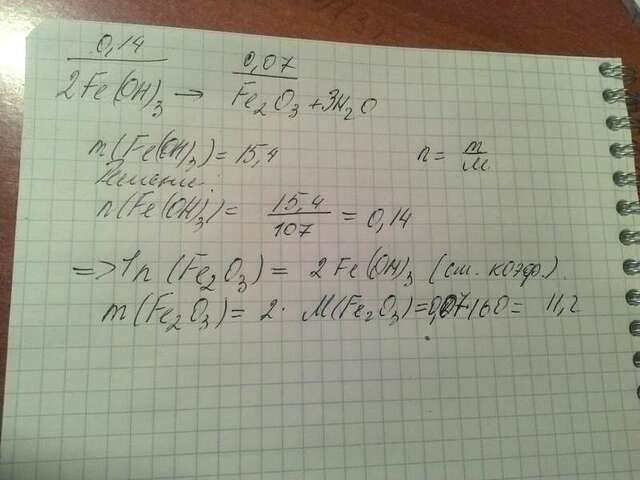 0,14 0,07
2Fe(OH)₃ → Fe₂O₃ + 3H₂O
m(Fe(OH)₃) = 15,4 n = m/M
Решени:
n(Fe(OH)₃) = 15,4/107 = 0,14
=> 1n (Fe₂O₃) = 2Fe(OH)₃ (см. коэф.).
m(Fe₂O₃) = 2· M(Fe₂O₃) = 0,07·160 = 11,2